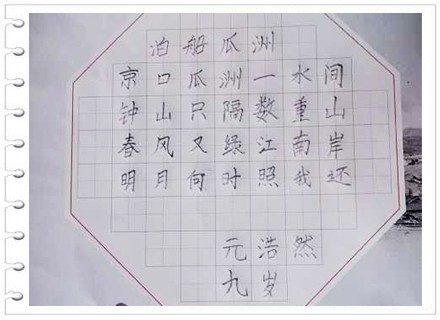 泊船瓜洲
京口瓜洲一水间
钟山只隔数重山
春风又绿江南岸
明月何时照我还
元浩然
九岁